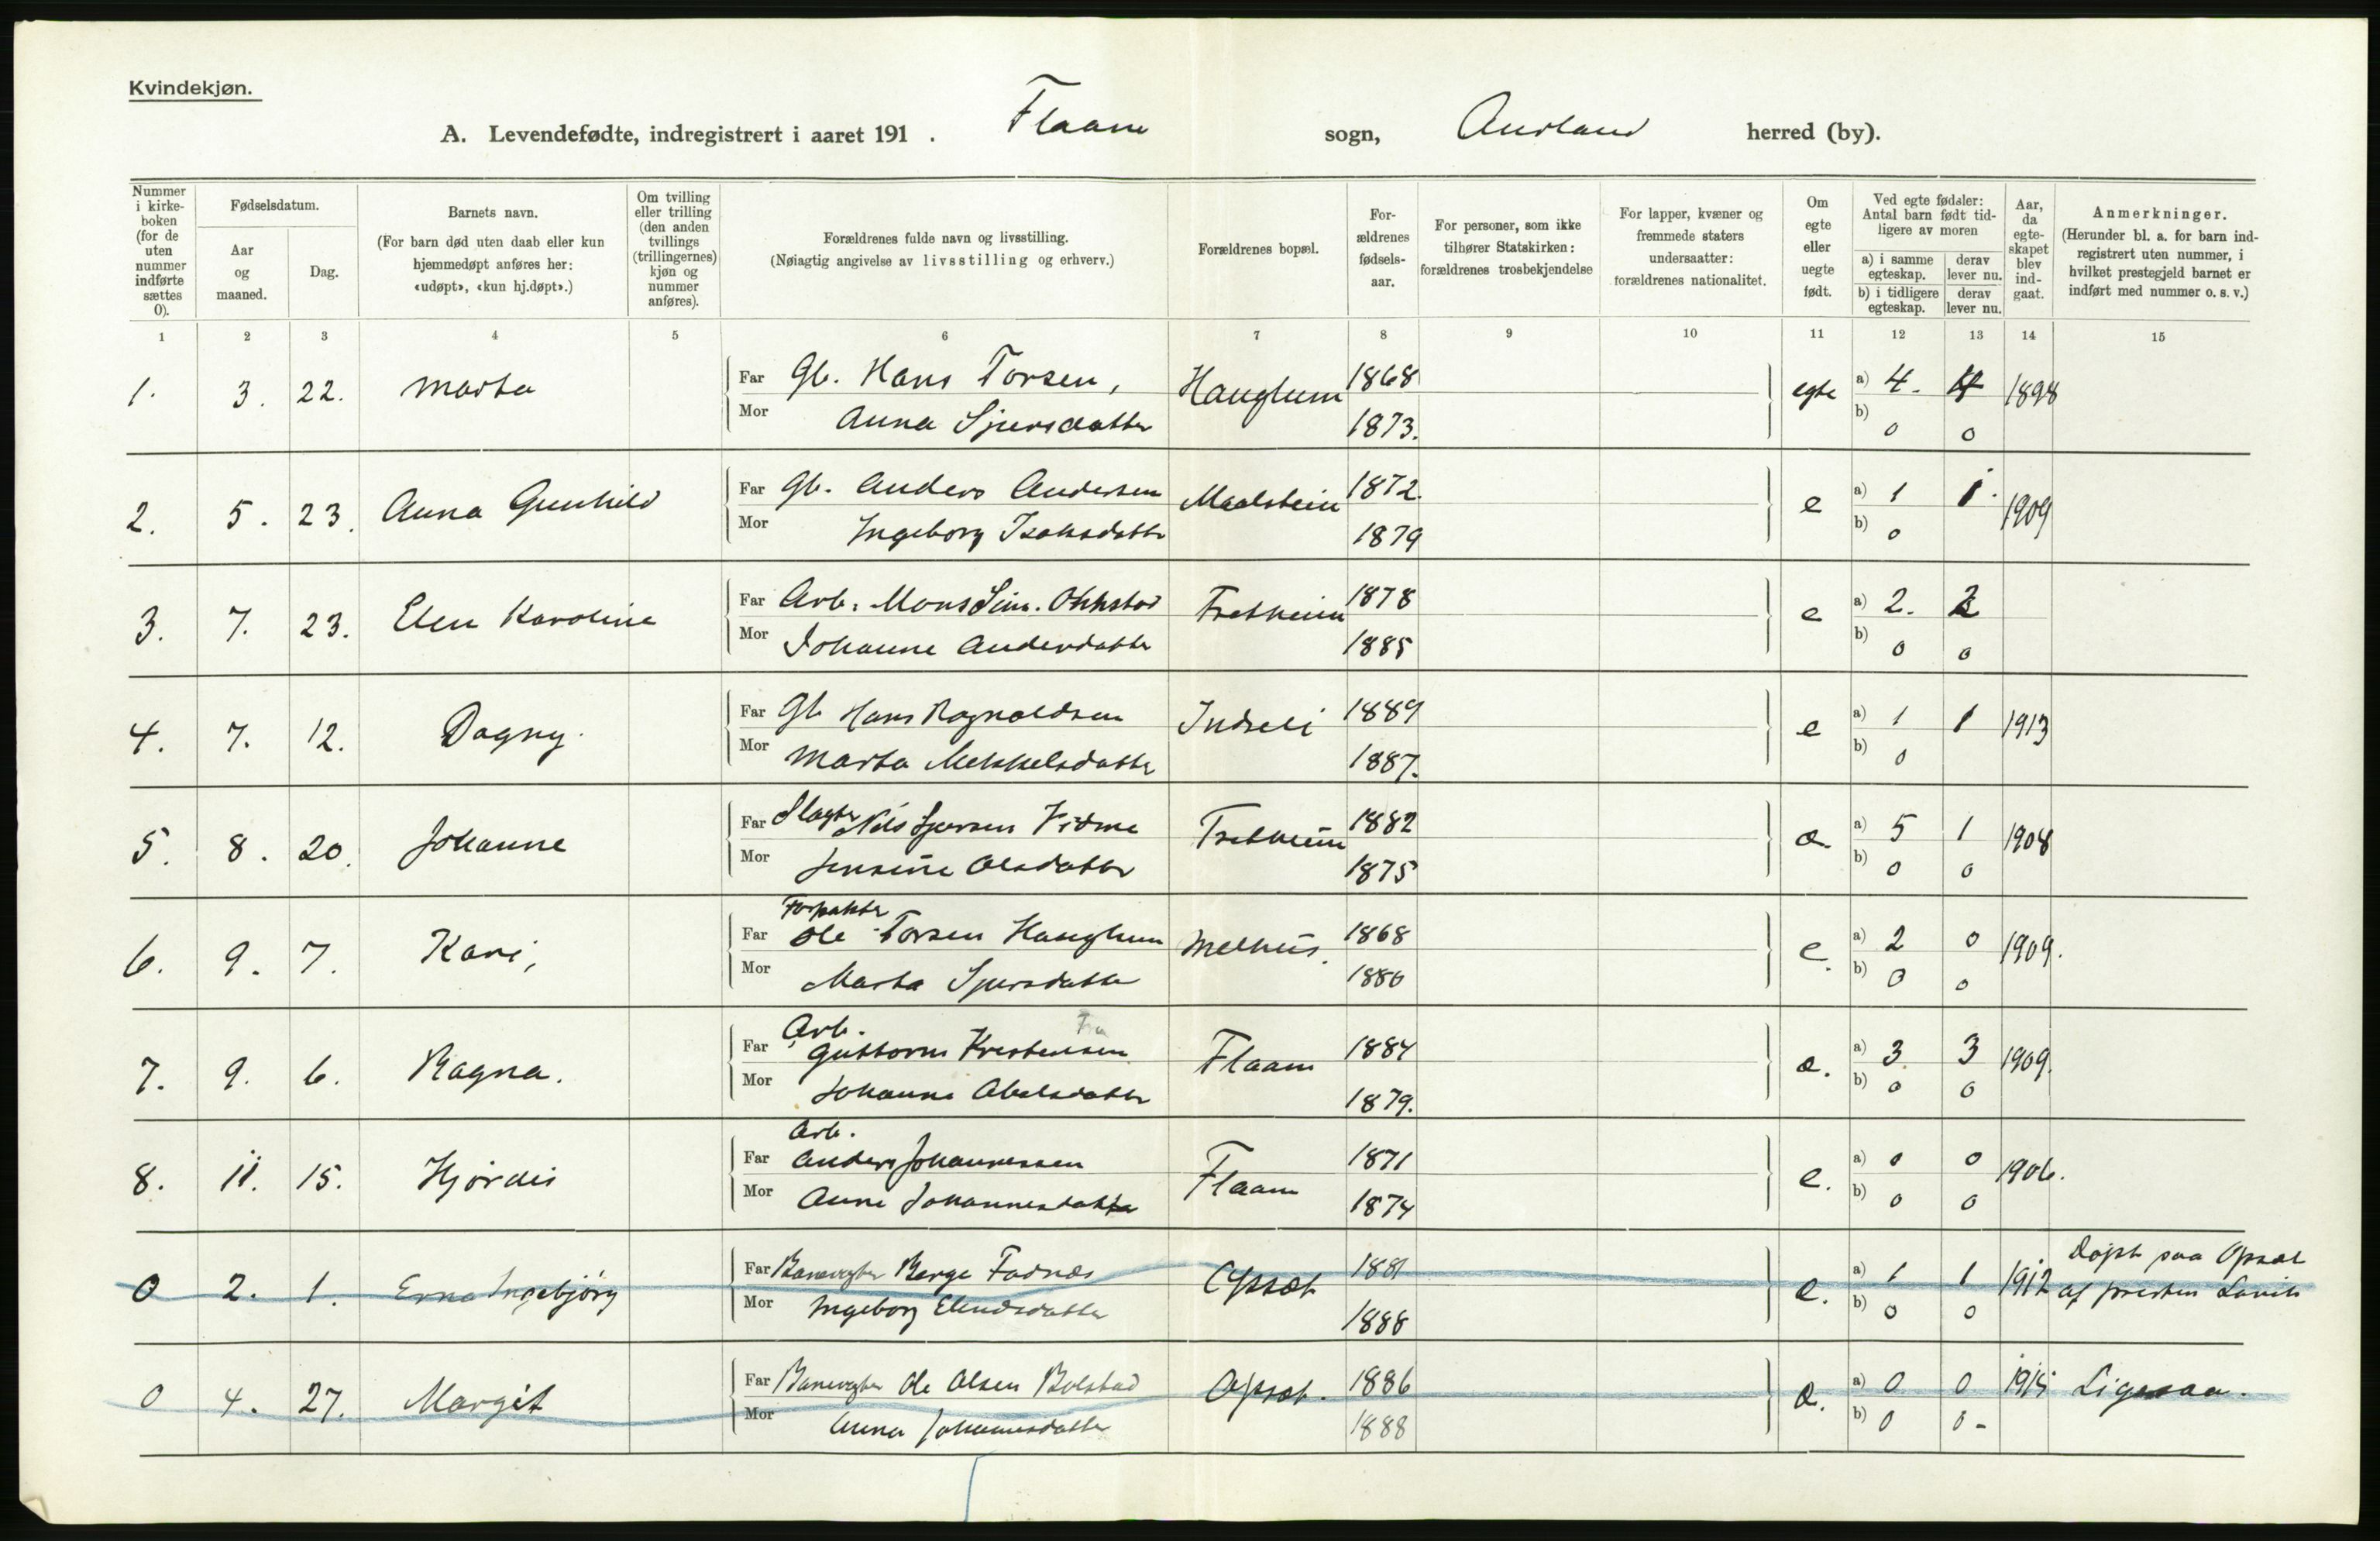 Kvindekjøn.
A. Levendefødte, indregistrert i aaret 191 . Flaam sogn, Aurland herred (by).
Nummer i kirkeboken (for de uten nummer indførte sættes 0).
Fødselsdatum.
Aar og maaned.
Dag.
Barnets navn.
(For barn død uten daab eller kun hjemmedøpt anføres her: «udøpt», «kun hj.døpt».)
Om tvilling eller trilling (den anden tvillings (trillingernes) kjøn og nummer anføres).
Forældrenes fulde navn og livsstilling.
(Nøiagtig angivelse av livsstilling og erhverv.)
Forældrenes bopæl.
Forældrenes fødselsaar.
For personer, som ikke tilhører Statskirken: forældrenes trosbekjendelse
For lapper, kvæner og fremmede staters undersaatter: forældrenes nationalitet.
Om egte eller uegte født.
Ved egte fødsler: Antal barn født tidligere av moren
a) i samme egteskap. derav lever nu.
b) i tidligere egteskap. derav lever nu.
Aar, da egteskapet blev indgaat.
Anmerkninger.
(Herunder bl. a. for barn indregistrert uten nummer, i hvilket prestegjeld barnet er indført med nummer o. s. v.)
1 2 3 4 5 6 7 8 9 10 11 12 13 14 15
1. 3. 22. Marta Far Gb. Hans Torsen, Hauglum 1868 egte a) 4. 4 1898
Mor Anna Sjursdatter 1873. b) 0 0
2. 5. 23. Anna Gunhild Far Gb. Anders Andersen 1872. e a) 1 1. 1909
Mor Ingeborg Isaksdatter 1879 b) 0
3. 7. 23. Elen Karoline Far Arb. Mons Sim. Okkstad Fretheim 1878 e a) 2. 2
Mor Johanne Andersdatter 1885 b) 0 0
4. 7. 12. Dagny. Far Gb Hans Ragnaldsen Indreli 1889 e a) 1 1 1913
Mor Marta Mekkelsdatter 1887. b) 0
5. 8. 20. Johanne Far Slagter Nils Sjursen Vidme Fretheim 1882 e. a) 5 1 1908
Mor Jensine Olsdatter 1875 b) 0 0
Forpakter
6. 9. 7. Kari, Far Ole Torsen Hauglum Melhus. 1868 e. a) 2 0 1909.
Mor Marta Sjursdatter 1886 b) 0 0
Arb.
7. 9. 6. Ragna. Far Guttorm Kristensen Flaam 1884 e. a) 3. 3 1909.
Mor Johanne Abelsdatter 1879. b) 0 0
Arb.
8. 11. 15. Hjördis Far Anders Johannessen Flaam 1871 e. a) 0 0 1906.
Mor Anne Johannesdatter 1874 b) 0 0
0 2. 1. Erna Ingebjörg Far Banevogter Berge Fadnæs Opsæt 1881 e. a) 1 1 1912 Døpt paa Opsæt
Mor Ingeborg Elendsdatter 1888 b) 0 0 af presten
0 4. 27. Margit Far Banevogter Ole Olsen Bolstad Opsæt. 1886 e. a) 0 0 1915 Ligesaa.
Mor Anna Johannesdatter 1888 b) 0 0-